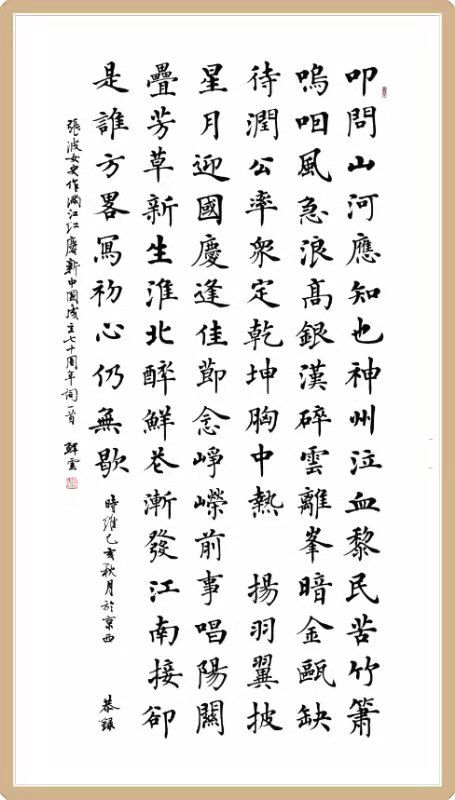 叩問山河應知也神州泣血黎民苦竹簫
嗚咽風急浪高銀漢碎雲離峯暗金甌缺
待潤公率衆定乾坤胸中熱 揚羽翼披
星月迎國慶逢佳節念崢嶸前事唱陽關
疊芳草新生淮北醉鮮花漸發江南接卻
是誰方畧寫初心仍無歇
時維己亥秋月於京西 恭錄
張波女史作滿江紅慶新中國成立七十周年詞一首